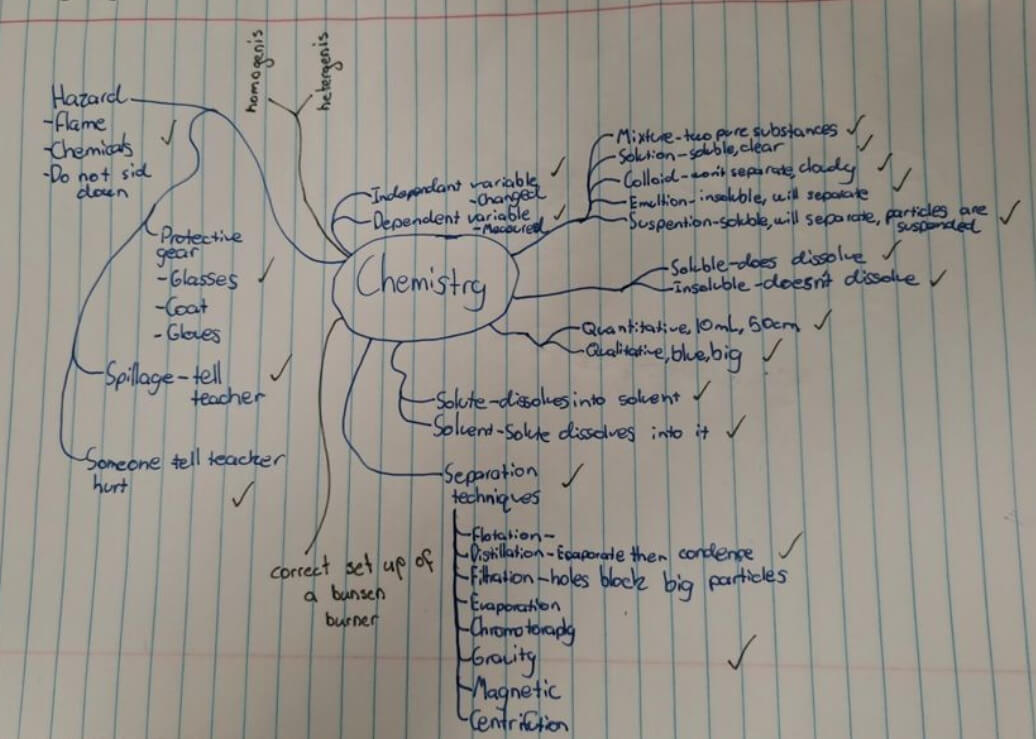 homogenis
hetergenis
Hazard
-Flame
-Chemicals
-Do not sid
down
Protective
gear
-Glasses
-Coat
-Gloves
Spillage-tell
teacher
Someone tell teacher
hurt
Independant variable
-Changed
Dependent variable
-Mecoured
Chemistry
Mixture-two pure substances
Solution-soluble, clear
Colloid-won't separate, cloudy
Emultion-insoluble, will separate
Suspention-soluble, will separate, particles are
suspended
Soluble-does dissolve
Insoluble-doesn't dissolve
Quantitative, 10mL, 50cm
Qualitative, blue, big
Solute-dissolves into solvent
Solvent-Solute dissolves into it
Separation
techniques
Flotation-
Distillation-Evaporate then condense
Filtration-holes block big particles
Evaporation
Chromotorapdy
Gravity
Magnetic
Centrifiction
correct set up of
a bunsen
burner